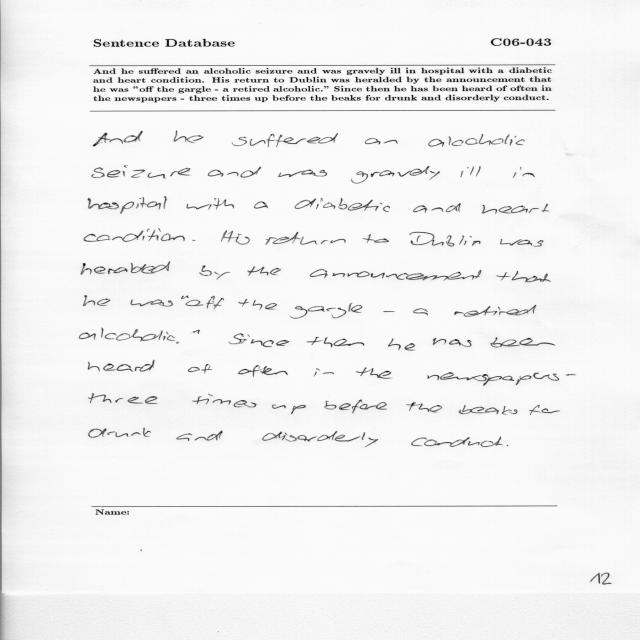 Sentence Database C06-043
And he suffered an alcoholic seizure and was gravely ill in hospital with a diabetic
and heart condition. His return to Dublin was heralded by the announcement that
he was "off the gargle - a retired alcoholic." Since then he has been heard of often in
the newspapers - three times up before the beaks for drunk and disorderly conduct.
And he suffered an alcoholic
seizure and was gravely ill in
hospital with a diabetic and heart
condition. His return to Dublin was
heralded by the announcement that
he was "off the gargle - a retired
alcoholic." Since then he has been
heard of often in the newspapers -
three times up before the beaks for
drunk and disorderly conduct.
Name:
12